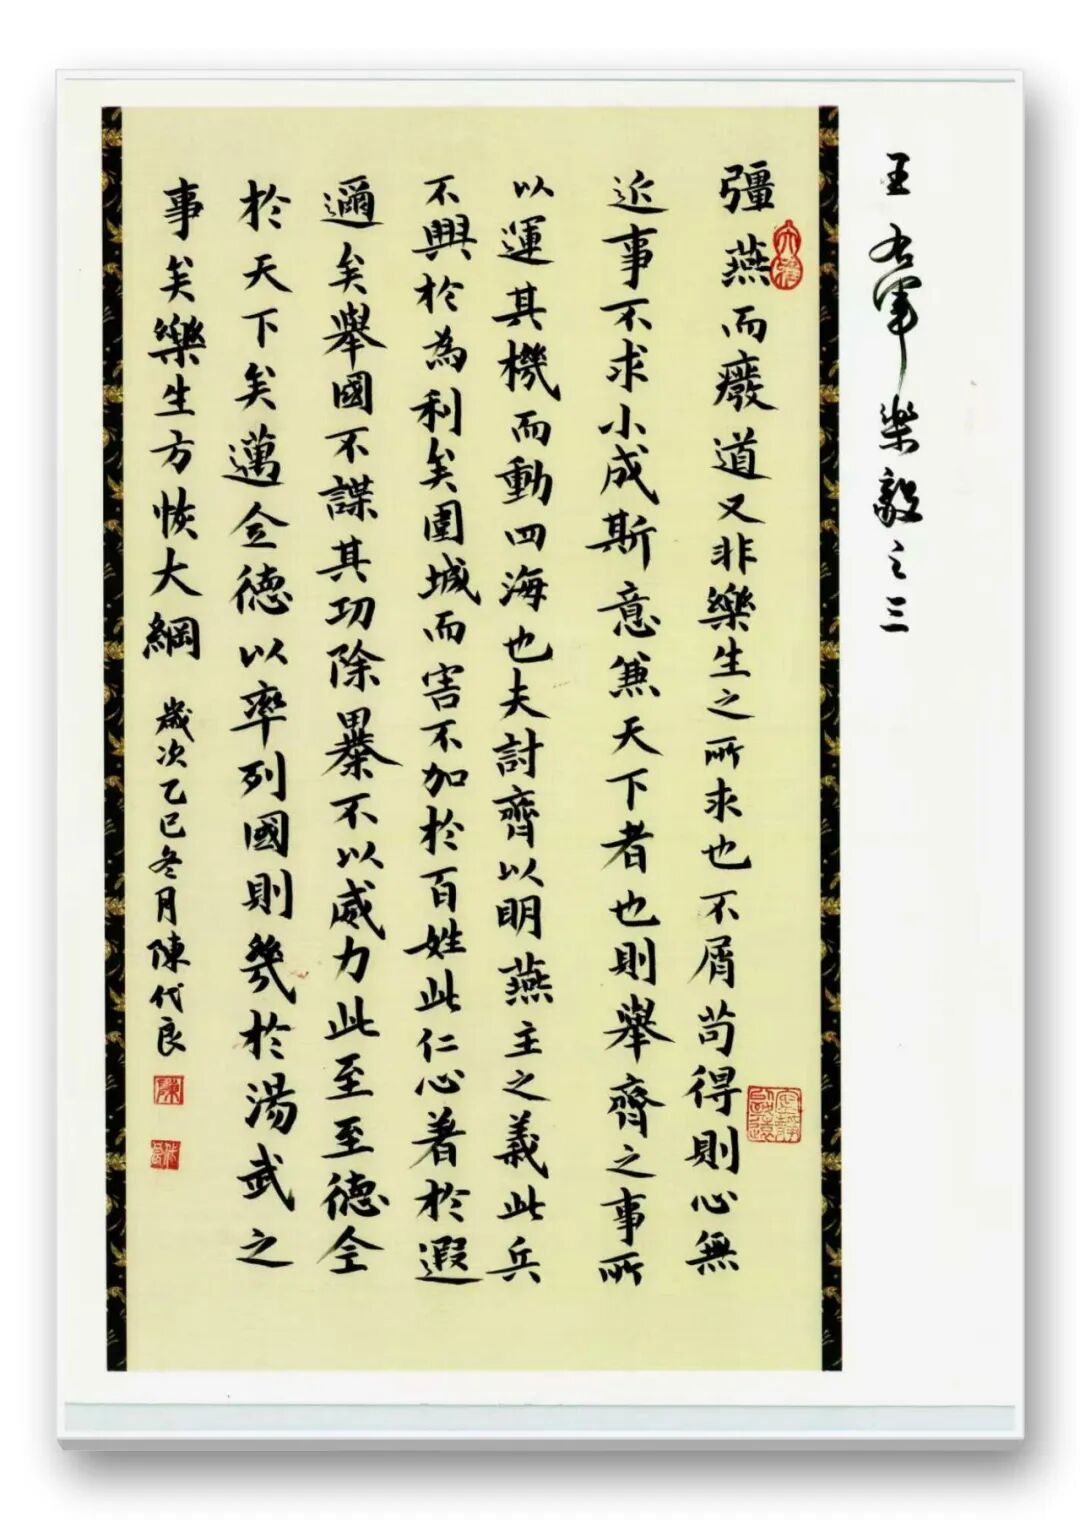 王右軍樂毅之三
彊燕而廢道又非樂生之所求也不屑苟得則心無
近事不求小成斯意兼天下者也則舉齊之事所
以運其機而動四海也夫討齊以明燕主之義此兵
不興於為利矣圍城而害不加於百姓此仁心著於遐
邇矣舉國不謀其功除暴不以威力此至至德全
於天下矣邁全德以率列國則幾於湯武之
事矣樂生方恢大綱
歲次乙巳冬月陳代良
陳